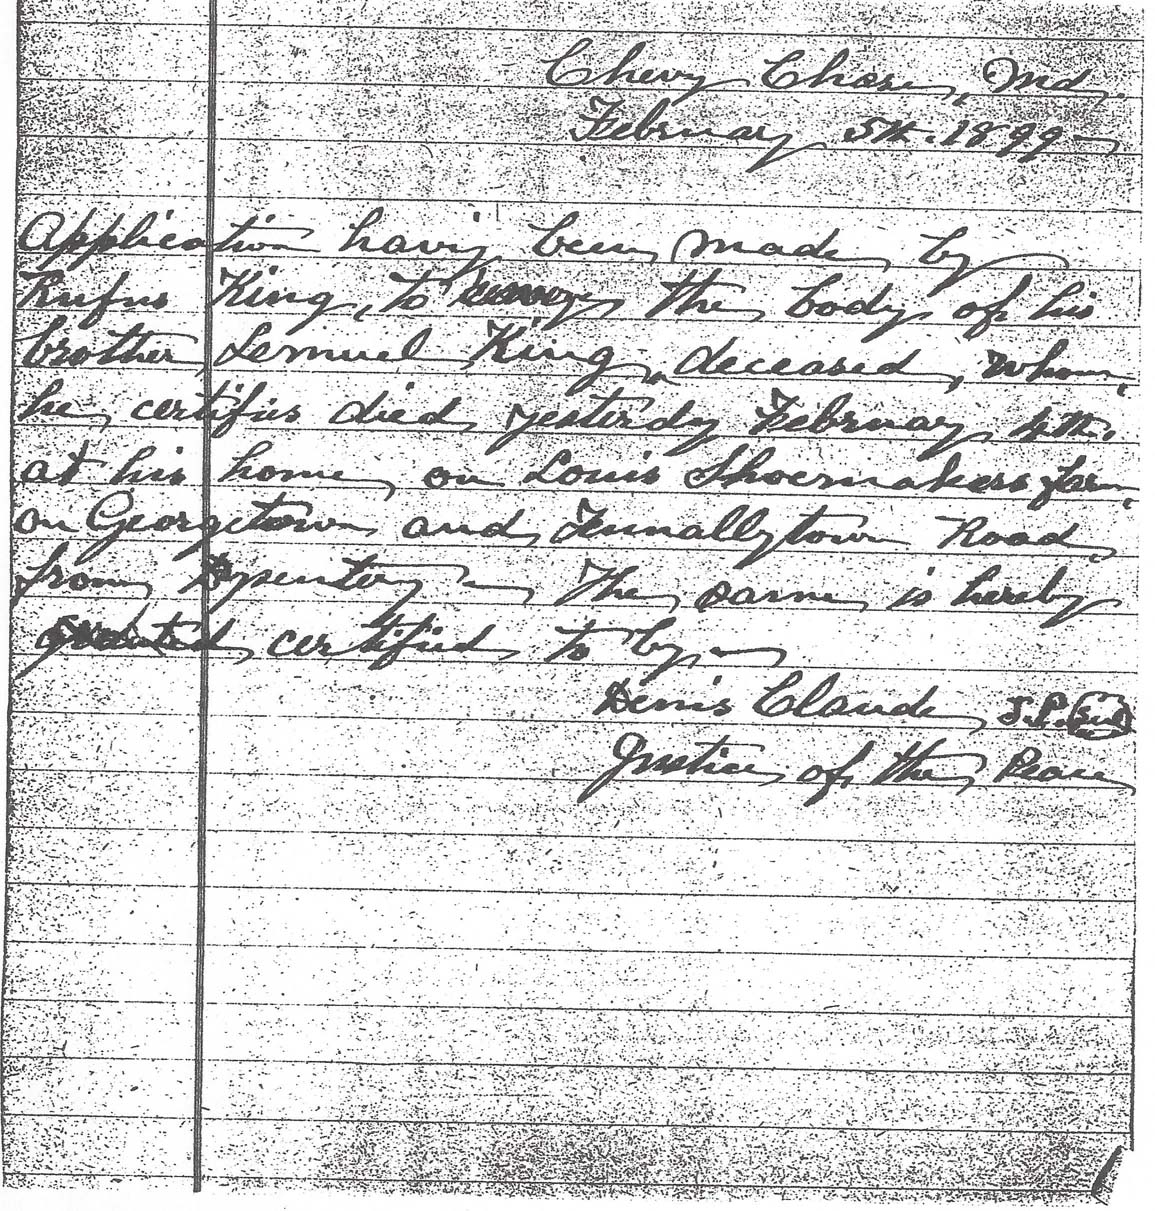 Chevy Chase, Md.
February 5th. 1899 -
Application having been made by
Rufus King, to the body of his
brother, Lemuel King, deceased, whom
he, certifies died, yesterday February 4th.
at his home, on Louis Shoemakers farm,
on Georgetown and Tennallytown Road,
from Dysentery - The same is hereby
granted, certified, to by -
Denis Claude, J.P.
Justice of the Peace